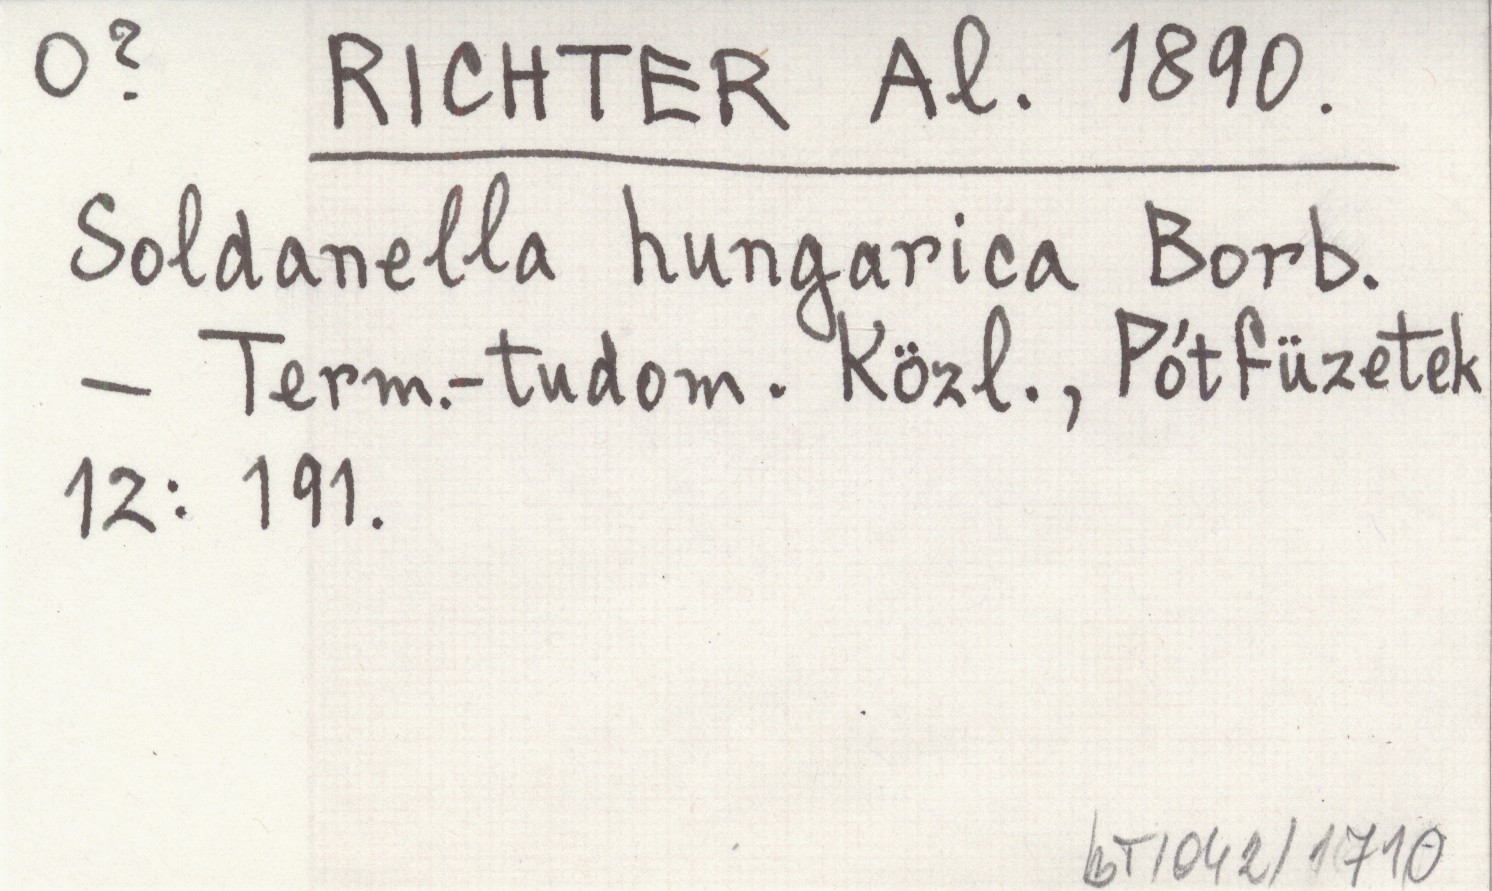 O? RICHTER Al. 1890.
Soldanella hungarica Borb.
— Term.-tudom. Közl., Pótfüzetek
12: 191.
bT1042/1710